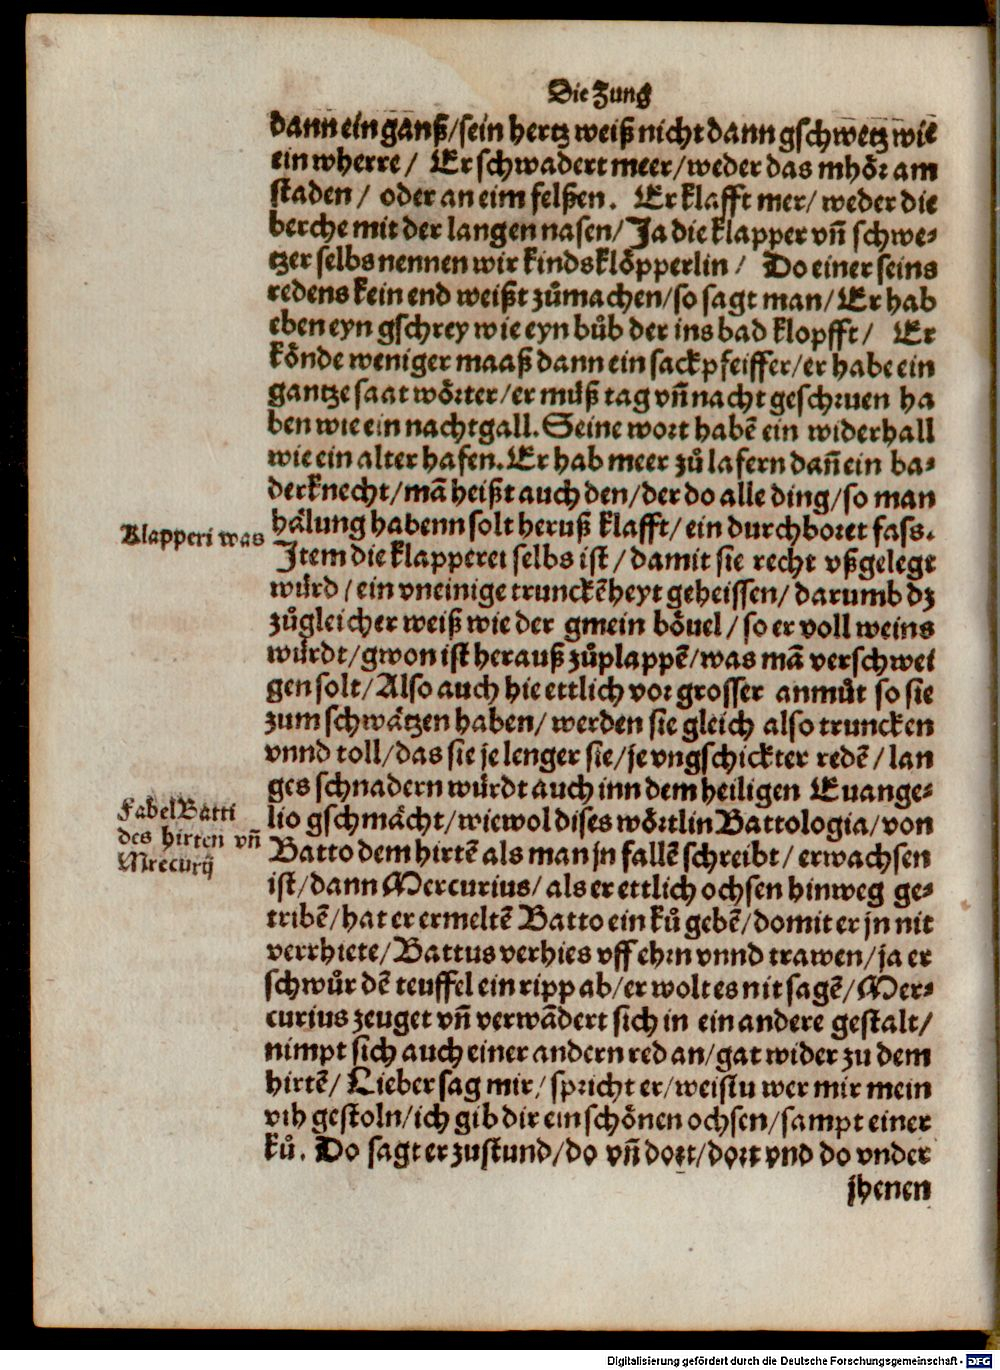 Die Zung
dann ein ganß/sein hertz weiß nicht dann gschwetz wie
ein wherre/ Er schwadert meer/weder das mhöꝛ am
staden/ oder an eim felßen. Er klafft mer/ weder die
berche mit der langen nasen/Ja die klapper vñ schwe⸗
tzer selbs nennen wir kindsklöpperlin/ Do einer seins
redens kein end weißt zůmachen/so sagt man/Er hab
eben eyn gschrey wie eyn bůb der ins bad klopfft/ Er
könde weniger maaß dann ein sackpfeiffer/er habe ein
gantze saat wöꝛter/er můß tag vñ nacht geschꝛuen ha
ben wie ein nachtgall. Seine woꝛt habẽ ein widerhall
wie ein alter hafen. Er hab meer zů lafern dañ ein ba⸗
derknecht/mã heißt auch den/der do alle ding/so man
Klapperi was
hälung habenn solt heruß klafft/ein durchboꝛet fass.
Item die klapperei selbs ist/damit sie recht vßgelegt
würd/ein vneinige trunckẽheyt geheissen/darumb dz
zůgleicher weiß wie der gmein böuel/so er voll weins
würdt/gwon ist herauß zůplappẽ/was mã verschwei
gen solt/Also auch hie ettlich voꝛ grosser anmůt so sie
zum schwätzen haben/werden sie gleich also truncken
vnnd toll/das sie je lenger sie/je vngschickter redẽ/lan
ges schnadern würdt auch inn dem heiligen Euange⸗
Fabel Batti
des hirten vñ
Mrecurij
lio gschmächt/wiewol dises wöꝛtlin Battologia/von
Batto dem hirtẽ als man jn fallẽ schreibt/erwachsen
ist/dann Mercurius/als er ettlich ochsen hinweg ge⸗
tribẽ/hat er ermeltẽ Batto ein ků gebẽ/domit er jn nit
verrhiete/Battus verhies vff ehꝛn vnnd trawen/ja er
schwůr dẽ teuffel ein ripp ab/er wolt es nit sagẽ/Mer⸗
curius zeuget vñ verwãdert sich in ein andere gestalt/
nimpt sich auch einer andern red an/gat wider zu dem
hirtẽ/Lieber sag mir/spꝛicht er/weistu wer mir mein
vih gestoln/ich gib dir ein schönen ochsen/sampt einer
ků. Do sagt er zustund/do vñ doꝛt/doꝛt vnd do vnder
jhenen
Digitalisierung gefördert durch die Deutsche Forschungsgemeinschaft - DFG